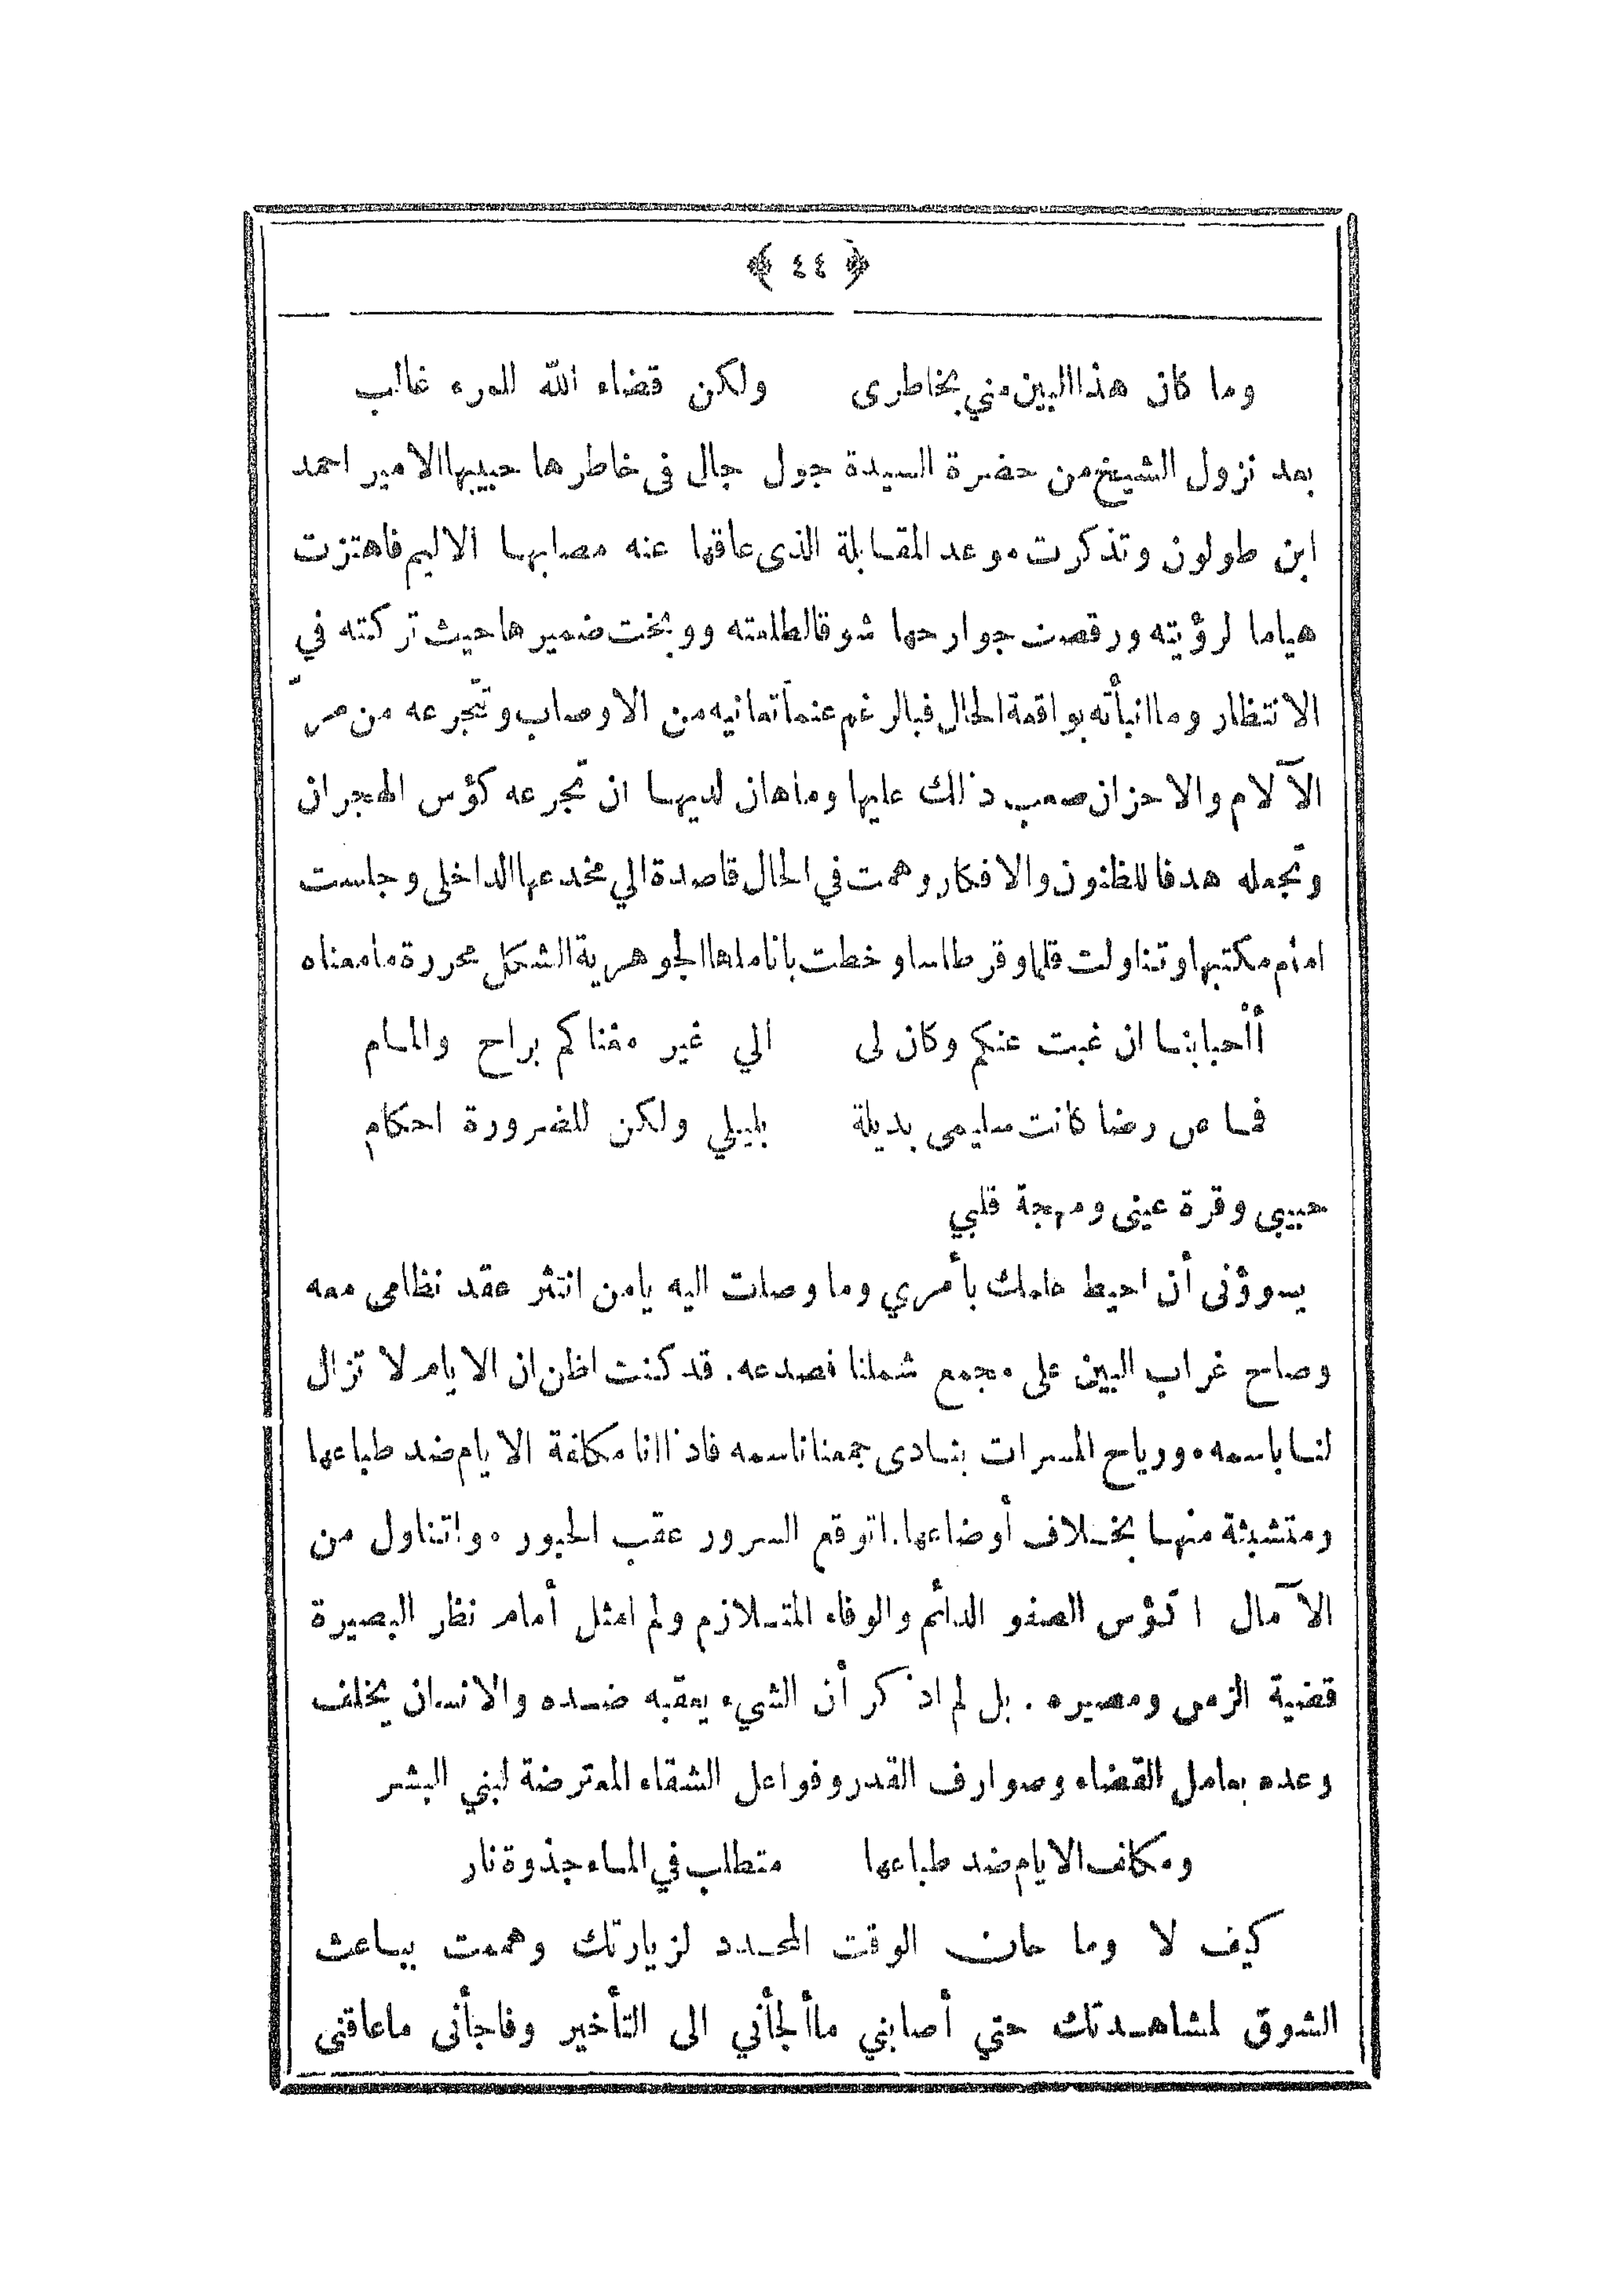 ﴿ ٤٤ ﴾
وما كان هذا البين مني بخاطرى ولكن قضاء الله للمرء غالب
بعد نزول الشيخ من حضرة السيدة جول جال فى خاطرها حبيبها الامير احمد
ابن طولون وتذكرت موعد المقابلة الذى عاقها عنه مصابها الاليم فاهتزت
هياما لرؤيته ورقصت جوارحها شوقا لطلعته ووبخت ضميرها حيث تركته في
الانتظار وما انبأته بواقعة الحال فبالرغم عنما تعانيه من الاوصاب وتتجرعه من مرّ
الآلام والاحزان صعب ذلك عليها وماهان لديها ان تجرعه كؤس الهجران
وتجعله هدفا للظنون والافكار وهمت في الحال قاصدة الي مخدعها الداخلى وجلست
امام مكتبها وتناولت قلما وقرطاسا وخطت باناملها الجوهرية الشكل محررة مامعناه
أأحبابنا ان غبت عنكم وكان لى الي غير مغناكم براح والمام
فما عن رضا كانت سليمى بديلة بليلي ولكن للضرورة احكام
حبيبي وقرة عينى ومهجة قلبي
يسوؤنى أن احيط علمك بأمري وما وصلت اليه يامن انتثر عقد نظامى معه
وصاح غراب البين على مجمع شملنا فصدعه. قد كنت اظن ان الايام لا تزال
لنا باسمه ورياح المسرات بنادى جمعنا ناسمه فاذا انا مكلفة الايام ضد طباعها
ومتشبثة منها بخلاف أوضاعها. اتوقع السرور عقب الحبور واتناول من
الآمال اكؤس الصفو الدائم والوفاء المتلازم ولم امثل أمام نظر البصيرة
قضية الزمن ومصيره . بل لم اذكر أن الشيء يعقبه ضده والانسان يخلف
وعده بعامل القضاء وصوارف القدر وفواعل الشقاء المعترضة لبني البشر
ومكلف الايام ضد طباعها متطلب في الماء جذوة نار
كيف لا وما حان الوقت المحدد لزيارتك وهممت بباعث
الشوق لمشاهدتك حتي أصابني ماألجأني الى التأخير وفاجأنى ماعاقنى